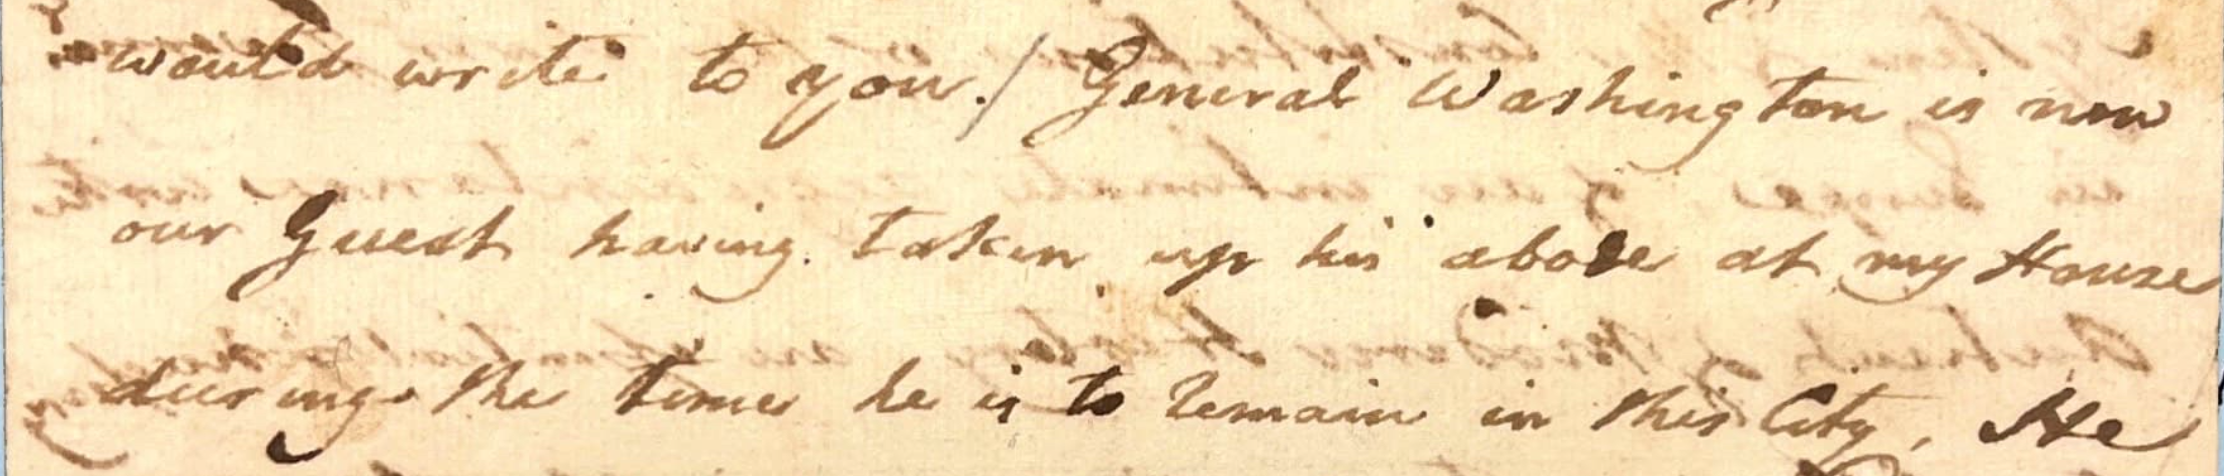 would write to you./ General Washington is now
our Guest having taken up his abode at my House
during the time he is to Remain in this City, He